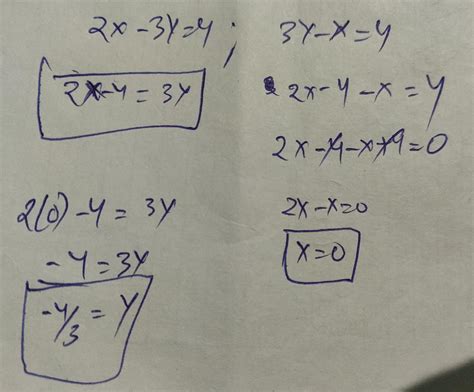 2x - 3y = 4 ; 3y - x = 4
2x - 4 = 3y
2x - 4 - x = 4
2x - 4 - x + 4 = 0
2x - x = 0
x = 0
2(0) - 4 = 3y
-4 = 3y
-4/3 = y